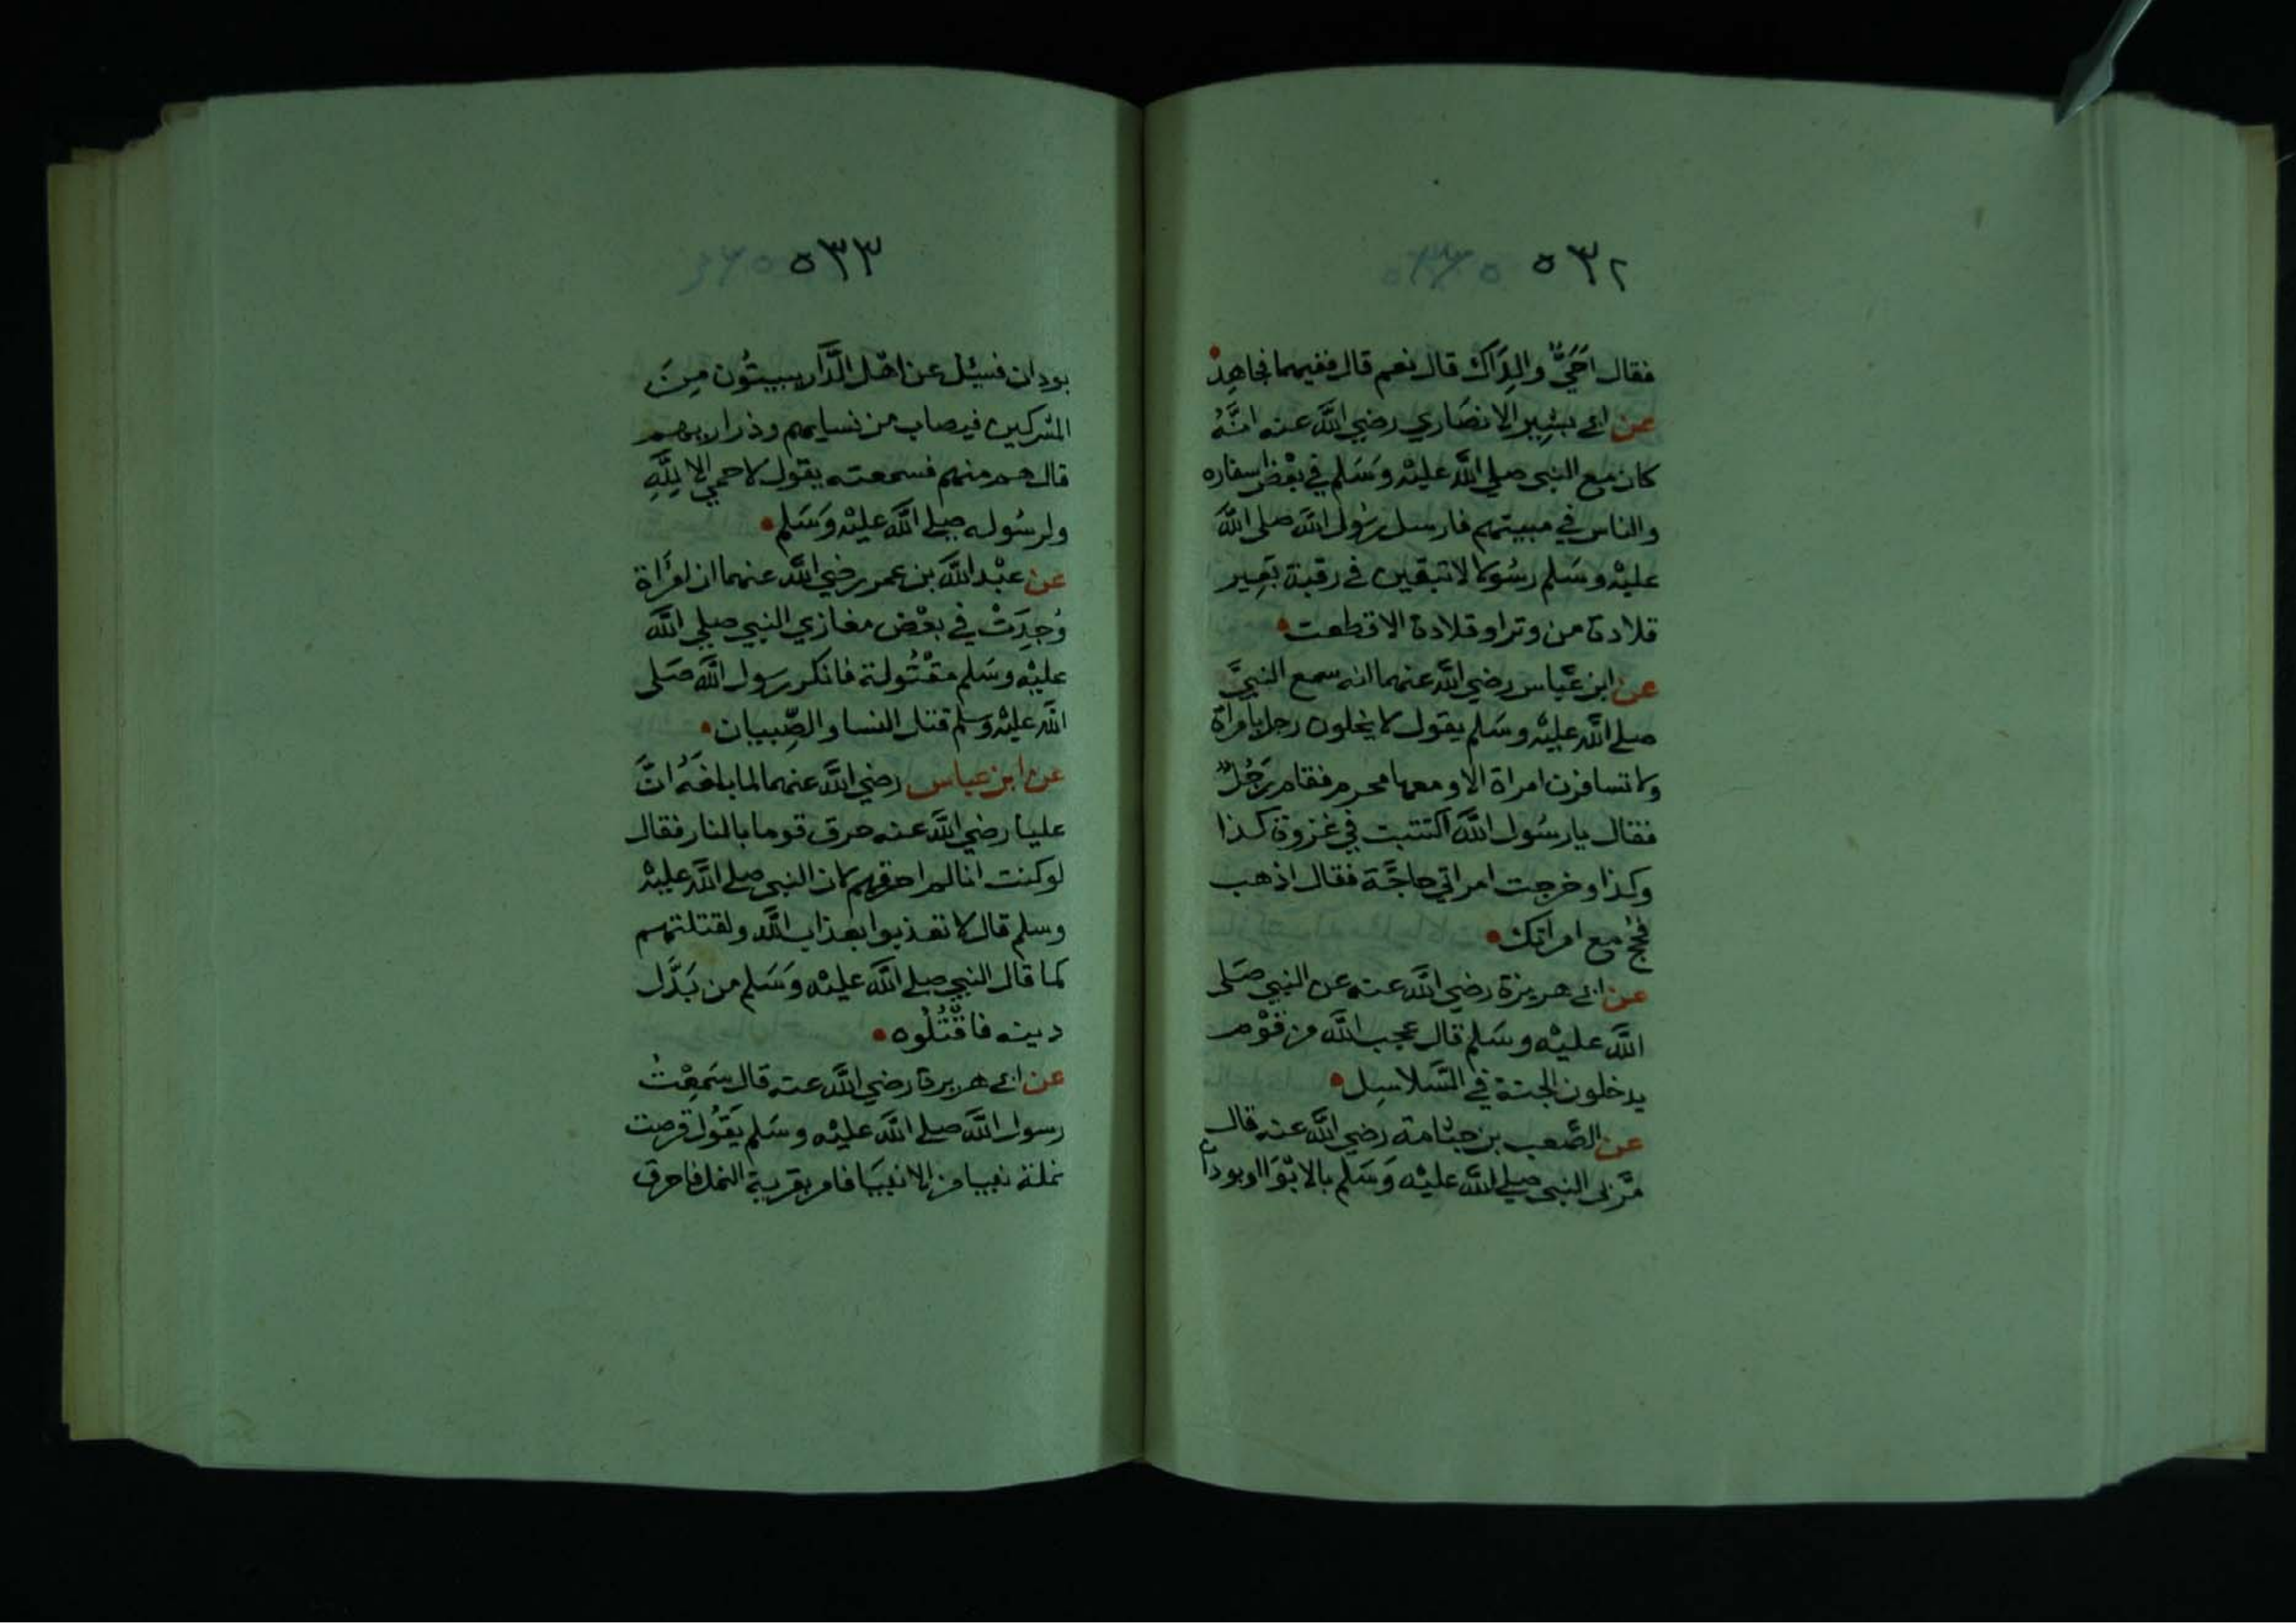 ٥٣٢
فقال أَحَيٌّ والِدَاكَ قال نعم قال ففيهما فجاهِدْ
عن ابي بشير الانصاري رضي اللَّه عنه انَّهُ
كان مع النبي صلي اللَّه عليْه وسَلم في بعْض اسفاره
والناس في مبيتهم فارسل رسُول اللَّه صلى اللَّه
عليْه وسَلم رسُولا لا تبقين في رقبة بَعِير
قلادة من وتر او قلادة الا قطعت
عن ابن عبَّاس رضي اللَّه عنهما انه سمع النبيَّ
صلي اللَّه عليْه وسَلم يقول لا يخلون رجل بامراة
ولا تسافرن امراة الا ومعها محرم فقام رَجُلٌ
فقال يا رسُول اللَّه اكتتبت في غزوة كذا
وكذا وخرجت امراتي حاجَّة فقال اذهب
فحُجَّ مع امراتك
عن ابي هريرة رضي اللَّه عنه عن النبي صَلى
اللَّه عليْه وسَلم قال عجب اللَّه من قوْم
يدخلون الجنة في السَّلاسِل
عن الصَّعب بن جثامة رضي اللَّه عنه قال
مَّر بي النبي صلي اللَّه عليْه وَسَلم بالابْوَا او بودان
٥٣٣
بودان فسئل عن اهْل الدَّار يبيتُون مِنَ
المشركين فيصاب من نسايهم وذراريهم
قال هم منهم فسمعته يقول لا حمي الا لِلَّهِ
ولرسُوله صلي اللَّه عليْه وَسَلم
عن عبْد اللَّه بن عمر رضي اللَّه عنهما ان امرَاة
وُجِدَتْ في بعْض مغازي النبي صلي اللَّه
عليْه وسَلم مقْتُولة فانكر رسول اللَّه صَلى
اللَّه عليْه وسلم قتل النسا والصِّبيان
عن ابن عباس رضي اللَّه عنهما لما بلغَهُ انَّ
عليا رضي اللَّه عنه حرق قوما بالنار فقال
لو كنت انا لم احرقهم لان النبي صلي اللَّه عليْه
وسلم قال لا تعذبوا بعذاب اللَّه ولقتلتهم
كما قال النبي صلي اللَّه عليْه وَسَلم من بَدَّل
دينه فاقْتُلُوه
عن ابي هريرة رضي اللَّه عنه قال سَمِعْت
رسول اللَّه صلي اللَّه عليْه وسَلم يَقُول قرصت
نملة نبيا من الانبيَا فامر بقرية النمل فاحرق